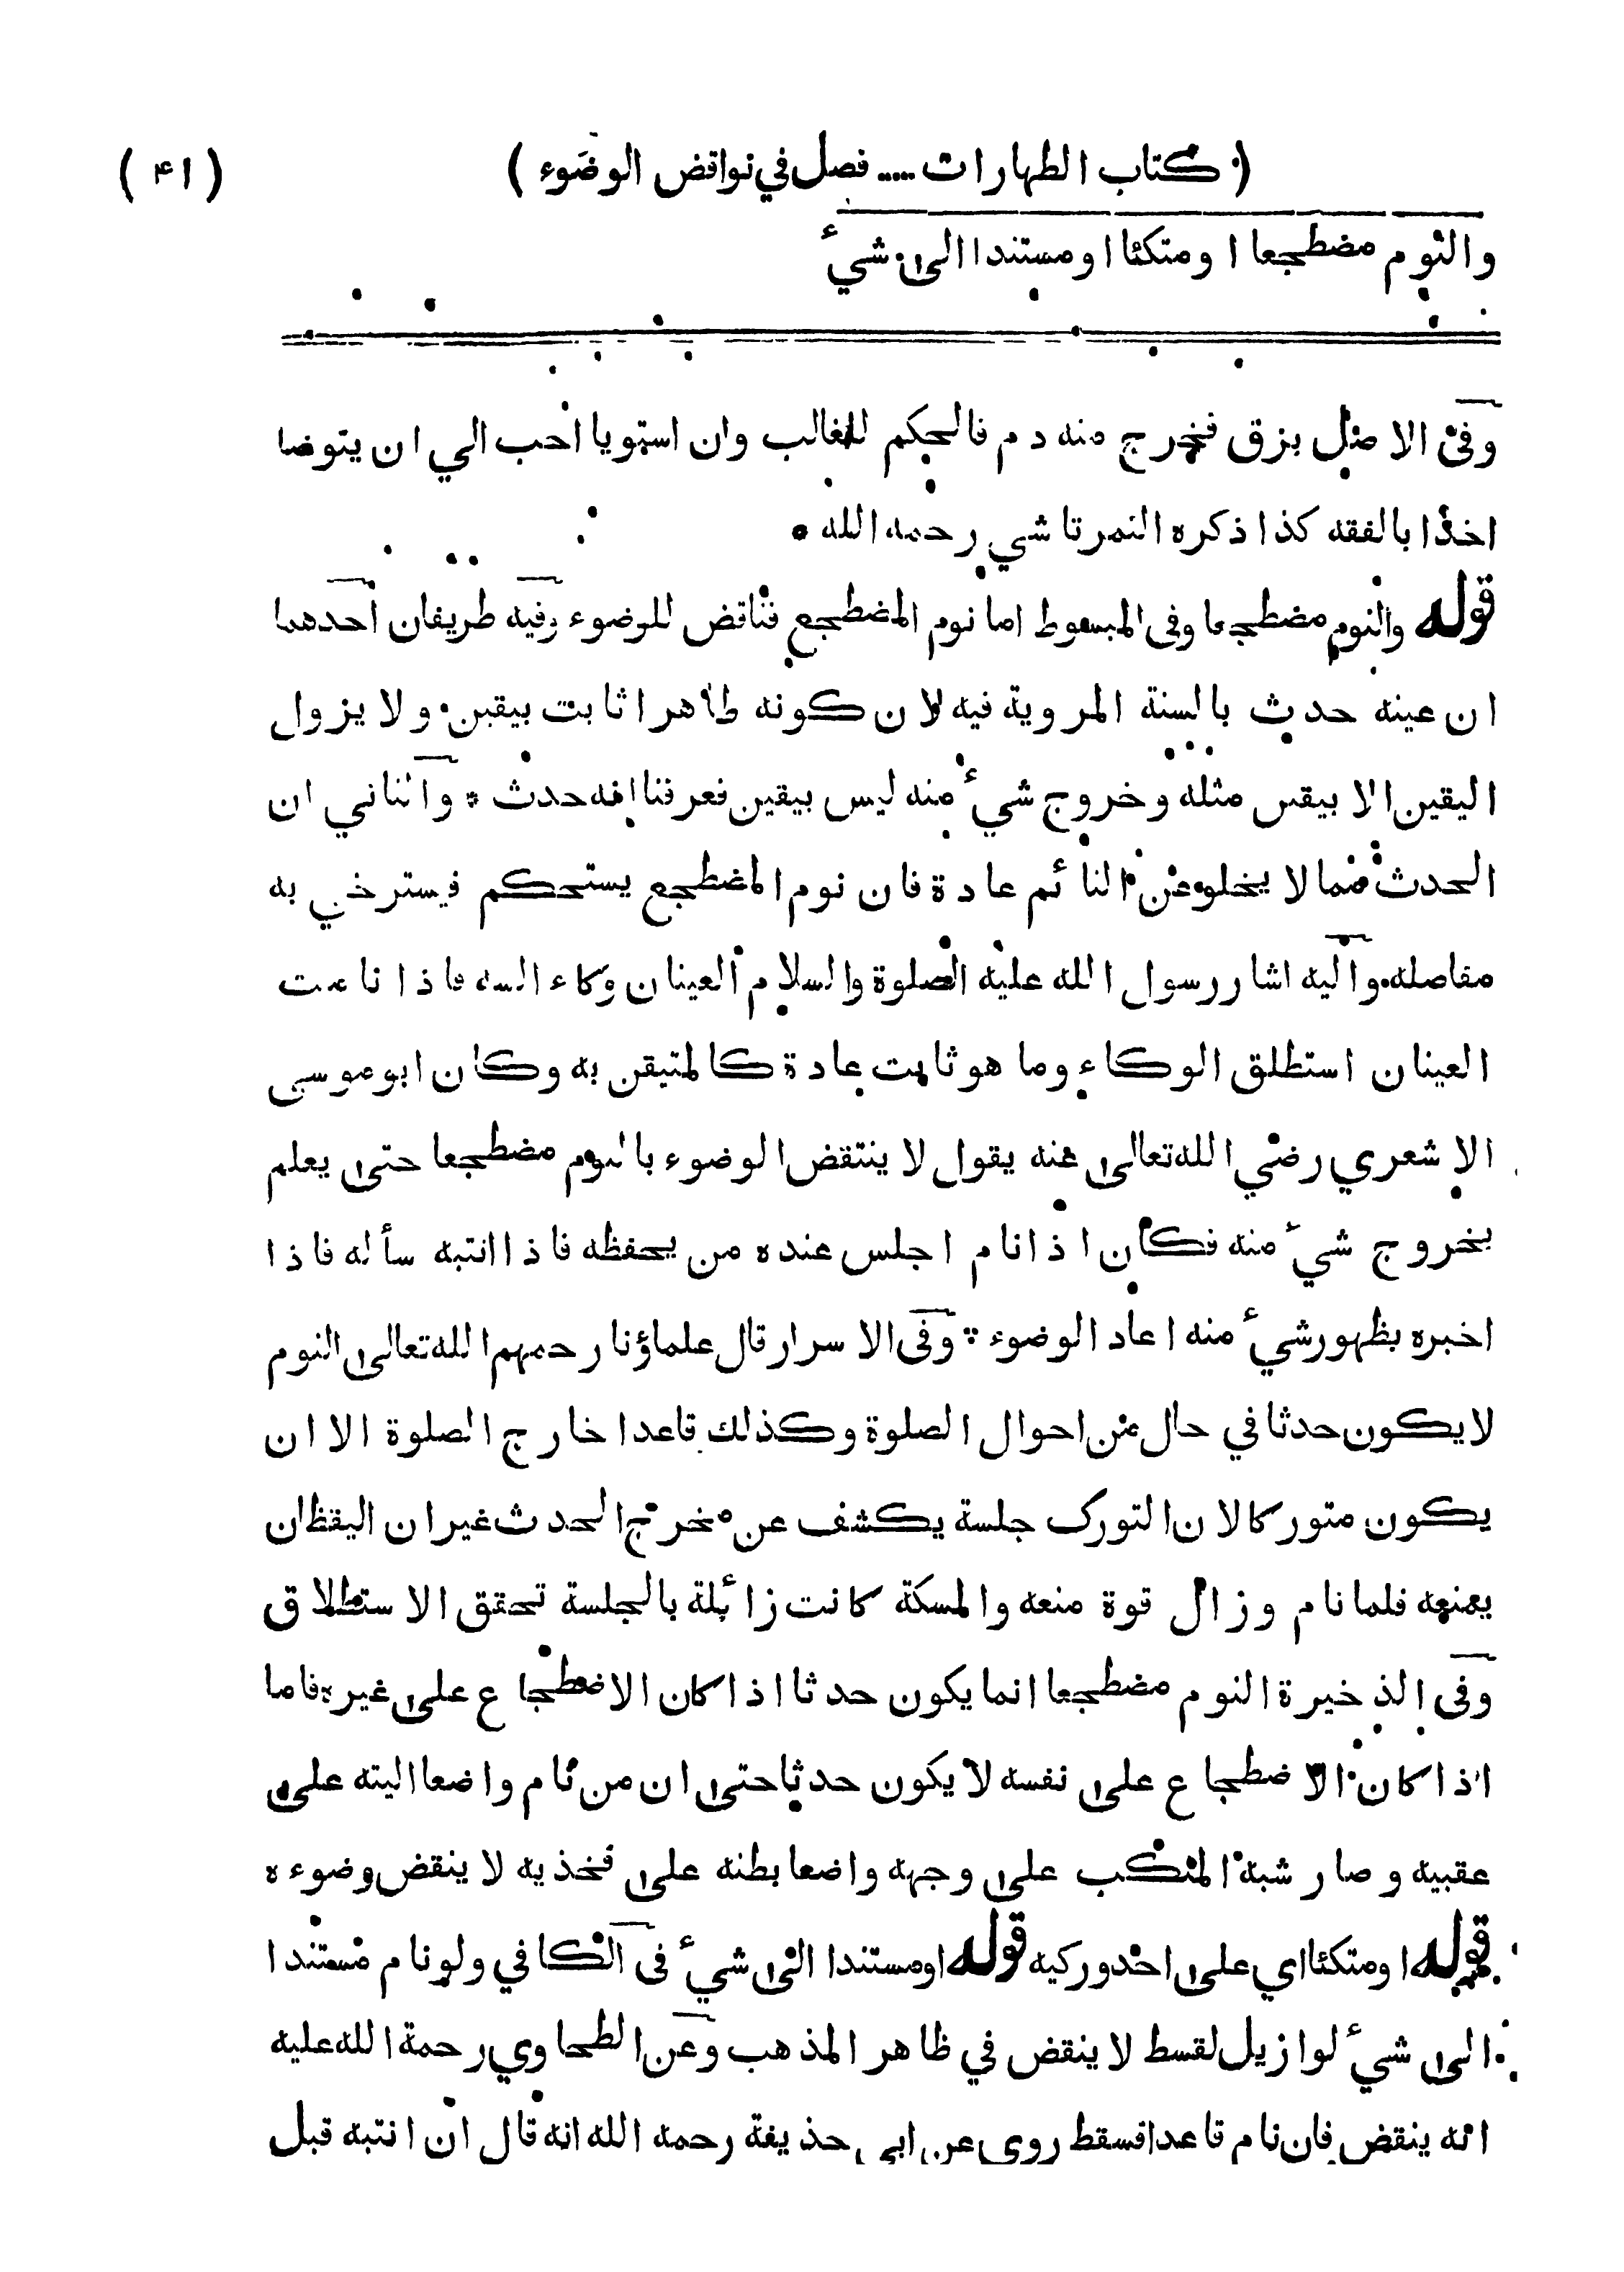 ( كتاب الطهارات .... فصل في نواقض الوضوء ) ( ۴۱ )
والنوم مضطجعا او متكئا او مستندا الى شيء
وفى الاصل بزق فخرج منه دم فالحكم للغالب وان استويا احب الي ان يتوضا
اخذا بالفقه كذا ذكره التمرتاشي رحمه الله *
قوله والنوم مضطجعا وفى المبسوط اما نوم المضطجع فناقض للوضوء وفيه طريقان احدهما
ان عينه حدث بالسنة المروية فيه لان كونه طاهرا ثابت بيقين ولا يزول
اليقين الا بيقين مثله وخروج شيء منه ليس بيقين فعرفنا انه حدث * والثاني ان
الحدث مما لا يخلو عن النائم عادة فان نوم المضطجع يستحكم فيسترخي به
مفاصله واليه اشار رسول الله عليه الصلوة والسلام العينان وكاء السه فاذا نامت
العينان استطلق الوكاء وما هو ثابت عادة كالمتيقن به وكان ابو موسى
الاشعري رضي الله تعالى عنه يقول لا ينتقض الوضوء بالنوم مضطجعا حتى يعلم
بخروج شيء منه فكان اذا نام اجلس عنده من يحفظه فاذا انتبه سأله فاذا
اخبره بظهور شيء منه اعاد الوضوء * وفى الاسرار قال علماؤنا رحمهم الله تعالى النوم
لا يكون حدثا في حال من احوال الصلوة وكذلك قاعدا خارج الصلوة الا ان
يكون متوركا لان التورك جلسة يكشف عن مخرج الحدث غير ان اليقظان
يمنعه فلما نام وزال قوة منعه والمسكة كانت زائلة بالجلسة تحقق الاستطلاق
وفى الذخيرة النوم مضطجعا انما يكون حدثا اذا كان الاضطجاع على غيره فاما
اذا كان الاضطجاع على نفسه لا يكون حدثا حتى ان من نام واضعا اليته على
عقبيه وصار شبه المنكب على وجهه واضعا بطنه على فخذيه لا ينقض وضوءه
قوله او متكئا اي على احد وركيه قوله او مستندا الى شيء فى الكافي ولو نام مستندا
الى شيء لو ازيل لقسط لا ينقض في ظاهر المذهب وعن الطحاوي رحمة الله عليه
انه ينقض فان نام قاعدا فسقط روى عن ابي حذيفة رحمه الله انه قال ان انتبه قبل